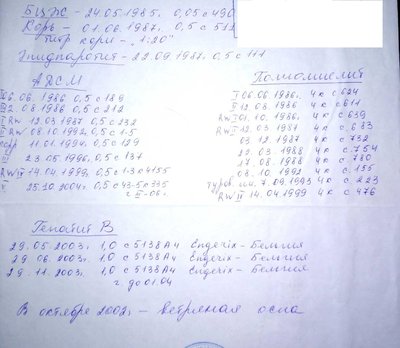 БЦЖ - 24.05.1985. 0,05 с 490
Корь - 01.06.1987. 0,5 с 512
титр кори - "1:20"
Эпидпаротит - 22.09.1987. 0,5 с 111
АДСМ
06.06.1986 0,5 с 189
2.08.1986 0,5 с 212
I RW 12.03.1987 0,5 с 232
II RW 08.10.1992, 0,5 с 1-5
11.01.1994. 0,5 с 129
23.05.1996, 0,5 с 137
RW IV 14.04.1999, 0,5 с 1-3 с 4155
25.20.2004г. 0,5 с 43-5 с 335
г. II-08г.
Полиомиелит
I 06.06 1986г. 4к с 624
II 12.08 1986 4к с 611
RW I 01.10. 1986. 4к с 639
RW II 12.03 1987 4к с 683
03.12.1987 4к с 732
22.03.1988 4к с 754
17.08.1988 4к с 780
08.10.1992 4к с 155
7.09.1993 4к с 223
RW III 14.04.1999 4к с 476
Гепатит В
29.05.2003г. 1,0 с 5138А4 Енджерикс - Бельгия
29.06.2003г. 1,0 с 5138А4 Енджерикс - Бельгия
29.11.2003г. 1,0 с 5138А4 Енджерикс - Бельгия
г. до 01.04
В октябре 2002г - ветряная оспа